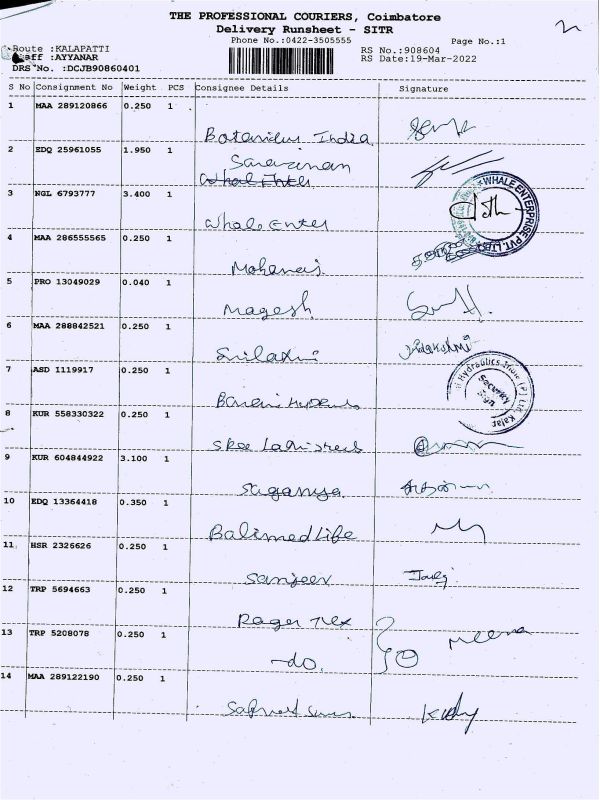 THE PROFESSIONAL COURIERS, Coimbatore
Delivery Runsheet - SITR
Phone No.:0422-3505555
Page No.:1
Route :KALAPATTI
RS No.:908604
Staff :AYYANAR
RS Date:19-Mar-2022
DRS No. :DCJB90860401
S No Consignment No Weight PCS Consignee Details Signature
1 MAA 289120866 0.250 1
India
2 EDQ 25961055 1.950 1
Saravanan
3 NGL 6793777 3.400 1
Whale Enter
WHALE ENTERPRISE PVT. LTD.
4 MAA 286555565 0.250 1
5 PRO 13049029 0.040 1
Magesh
6 MAA 288842521 0.250 1
7 ASD 1119917 0.250 1
Hydraulics India (P) Ltd, Kalap
Security Sign
8 KUR 558330322 0.250 1
9 KUR 604844922 3.100 1
Suganya
10 EDQ 13364418 0.350 1
Balimed Life
11 HSR 2326626 0.250 1
Sanjeev
12 TRP 5694663 0.250 1
Rager Tex
13 TRP 5208078 0.250 1
-do. Meena
14 MAA 289122190 0.250 1